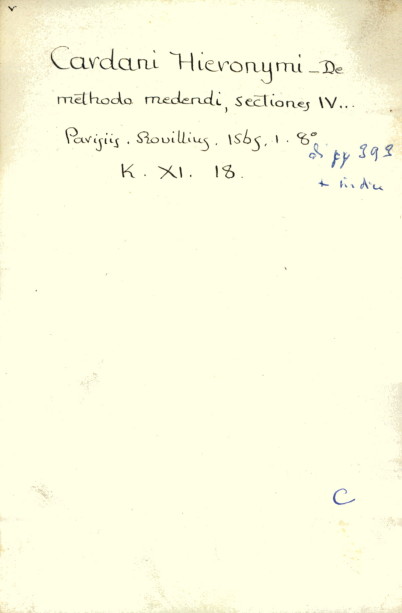 Cardani Hieronymi - De
methodo medendi, sectiones IV...
Parisiis. Rovillius. 1565. 1. 8°
di pp 393
+ indice
K. XI. 18.
C